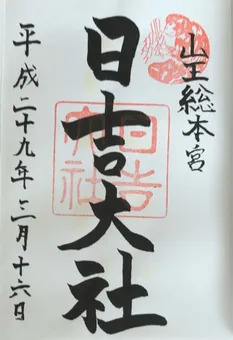 山王総本宮
日吉大社
平成二十九年三月十六日
日吉大社